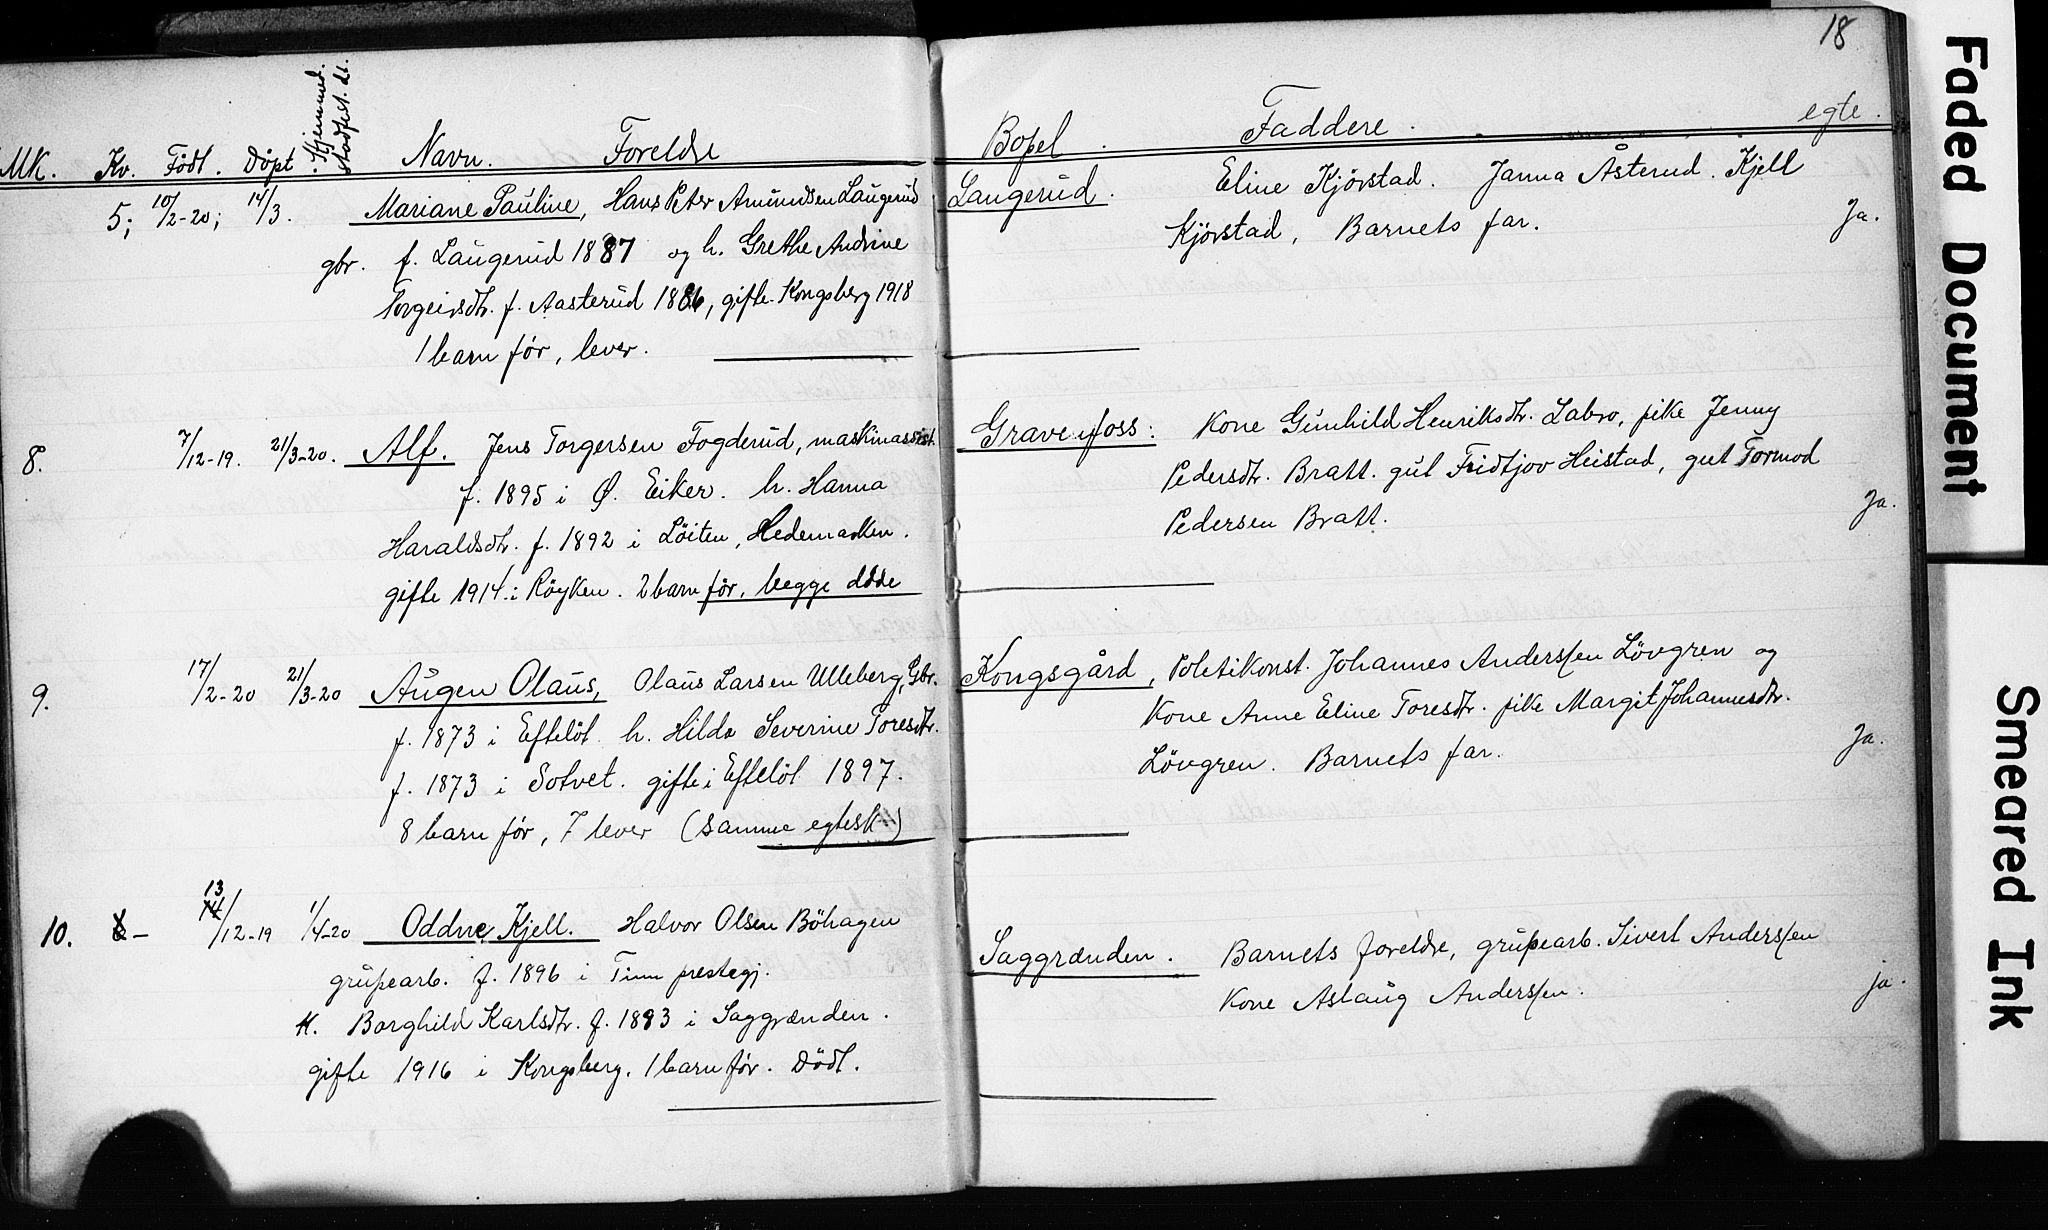 18
Mk. Kv. Födt. Döpt. Hjemmed. stadfest. d. Navn. Foreldre Bopel. Faddere. egte.
5; 10/2-20; 14/3. Mariane Pauline, Hans Peter Amundsen Laugerud
gbr. f. Laugerud 1887 og h. Grethe Andrine
Torgeirsdtr. f. Aasterud 1886, gifte Kongsberg 1918
1 barn før, lever.
Laugerud. Eline Kjörstad. Janna Åsterud. Kjell
Kjörstad, Barnets far. Ja.
8. 7/12-19. 21/3-20. Alf. Jens Torgersen Fogderud, maskinassist.
f. 1895 i Ø. Eiker. h. Hanna
Haraldsdtr. f. 1892 i Löiten, Hedemarken.
gifte 1914 i Röyken. 2 barn för, begge döde
Gravenfoss: Kone Gunhild Henriksdtr. Labro, pike Jenny
Pedersdtr. Bratt. gut Fridtjov Heistad, gut Tormod
Pedersen Bratt. Ja.
9. 17/2-20 21/3-20 Augen Olaus, Olaus Larsen Ulleberg, Gbr.
f. 1873 i Efteløt h. Hilda Severine Toresdtr.
f. 1873 i Sotvet. gifte i Efteløt 1897.
8 barn før, 7 lever (samme egtesk.)
Kongsgård, Politikonst. Johannes Anderssen Lövgren og
Kone Anne Eline Toresdtr. pike Margit Johannesdtr.
Lövgren. Barnets far. Ja.
10. - 13/12-19 1/4-20 Oddne Kjell. Halvor Olsen Böhagen
grubearb. f. 1896 i Tinn prestegj.
H. Borghild Karlsdtr. f. 1893 i Saggrænden.
gifte 1916 i Kongsberg. 1 barn før. Dödt.
Saggrænden. Barnets foreldre, grubearb. Sivert Anderssen
Kone Aslaug Anderssen. ja.
Faded Document
Smeared Ink